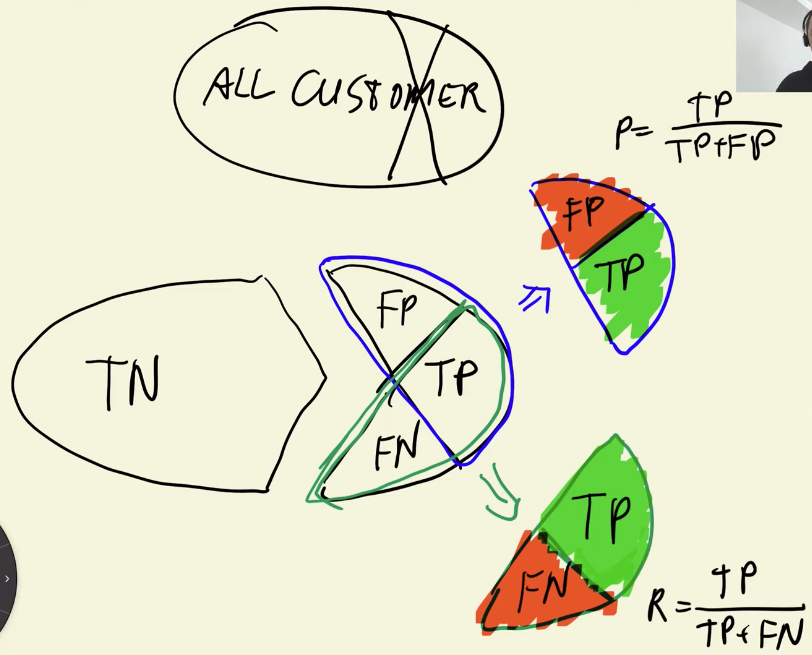 ALL CUSTOMER
P = TP / TP+FP
FP
TP
FP
TN
TP
FN
TP
FN
R = TP / TP+FN